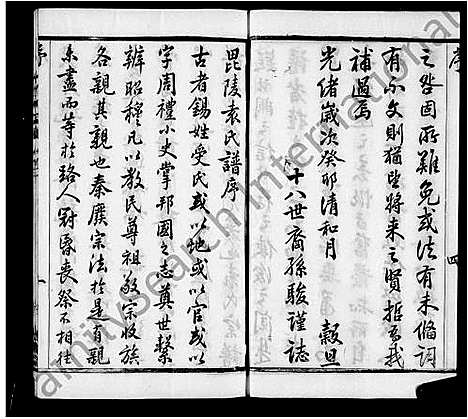 序
之咎固所難免或法有未備詞
有不文則猶望將來之賢哲為我
補過焉
光緒歲次癸卯清和月 穀旦
十八世裔孫駿謹誌
四
毘陵袁氏譜序
古者錫姓受氏或以地或以官或以
字周禮小史掌邦國之志奠世繫
辨昭穆凡以教民尊祖敬宗收族
各親其親也秦廢宗法於是有親
未盡而等於路人對唇喪祭不相往
序
一
familysearch International